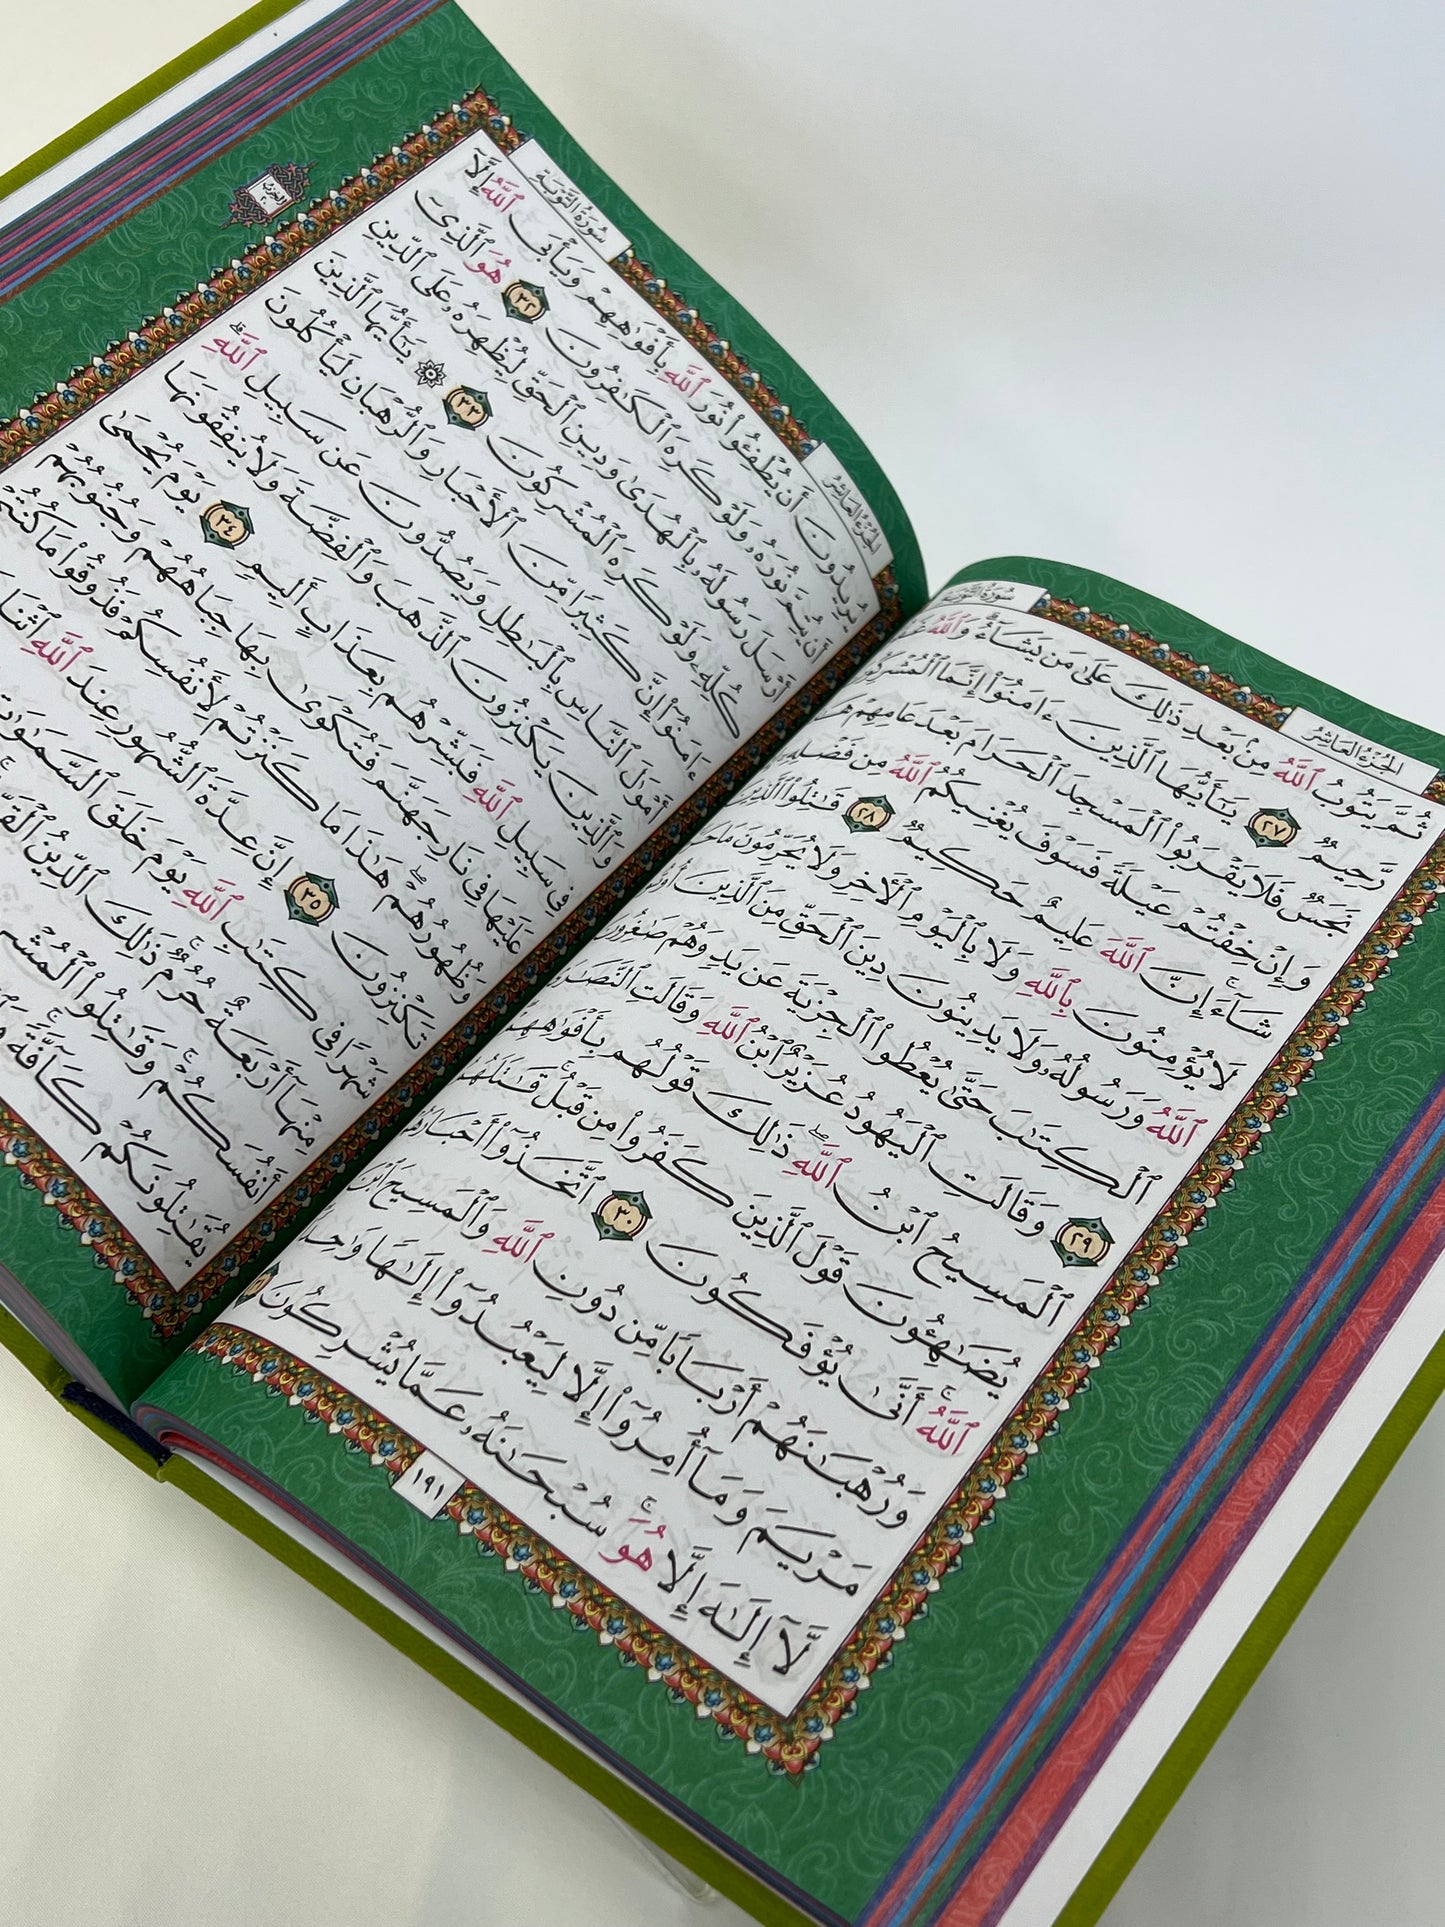 سُورَةُ التَّوْبَةِ
الجُزْءُ العَاشِرُ
ثُمَّ يَتُوبُ ٱللَّهُ مِنۢ بَعْدِ ذَٰلِكَ عَلَىٰ مَن يَشَآءُ ۗ وَٱللَّهُ
رَّحِيمٌ ٢٧ يَٰٓأَيُّهَا ٱلَّذِينَ ءَامَنُوٓا۟ إِنَّمَا ٱلْمُشْرِكُونَ
نَجَسٌ فَلَا يَقْرَبُوا۟ ٱلْمَسْجِدَ ٱلْحَرَامَ بَعْدَ عَامِهِمْ
وَإِنْ خِفْتُمْ عَيْلَةً فَسَوْفَ يُغْنِيكُمُ ٱللَّهُ مِن فَضْلِهِۦٓ
شَآءَ ۚ إِنَّ ٱللَّهَ عَلِيمٌ حَكِيمٌ ٢٨ قَٰتِلُوا۟ ٱلَّذِينَ
لَا يُؤْمِنُونَ بِٱللَّهِ وَلَا بِٱلْيَوْمِ ٱلْءَاخِرِ وَلَا يُحَرِّمُونَ مَا
ٱللَّهُ وَرَسُولُهُۥ وَلَا يَدِينُونَ دِينَ ٱلْحَقِّ مِنَ ٱلَّذِينَ أُوتُوا۟
ٱلْكِتَٰبَ حَتَّىٰ يُعْطُوا۟ ٱلْجِزْيَةَ عَن يَدٍ وَهُمْ صَٰغِرُونَ
٢٩ وَقَالَتِ ٱلْيَهُودُ عُزَيْرٌ ٱبْنُ ٱللَّهِ وَقَالَتِ ٱلنَّصَٰرَى
ٱلْمَسِيحُ ٱبْنُ ٱللَّهِ ۖ ذَٰلِكَ قَوْلُهُم بِأَفْوَٰهِهِمْ
يُضَٰهِـُٔونَ قَوْلَ ٱلَّذِينَ كَفَرُوا۟ مِن قَبْلُ ۚ قَٰتَلَهُمُ
ٱللَّهُ ۚ أَنَّىٰ يُؤْفَكُونَ ٣٠ ٱتَّخَذُوٓا۟ أَحْبَارَهُمْ
وَرُهْبَٰنَهُمْ أَرْبَابًا مِّن دُونِ ٱللَّهِ وَٱلْمَسِيحَ ٱبْنَ
مَرْيَمَ وَمَآ أُمِرُوٓا۟ إِلَّا لِيَعْبُدُوٓا۟ إِلَٰهًا وَٰحِدًا
لَّآ إِلَٰهَ إِلَّا هُوَ ۚ سُبْحَٰنَهُۥ عَمَّا يُشْرِكُونَ
١٩١
سُورَةُ التَّوْبَةِ
الجُزْءُ العَاشِرُ
يُرِيدُونَ أَن يُطْفِـُٔوا۟ نُورَ ٱللَّهِ بِأَفْوَٰهِهِمْ وَيَأْبَى ٱللَّهُ إِلَّآ
أَن يُتِمَّ نُورَهُۥ وَلَوْ كَرِهَ ٱلْكَٰفِرُونَ ٣٢ هُوَ ٱلَّذِىٓ
أَرْسَلَ رَسُولَهُۥ بِٱلْهُدَىٰ وَدِينِ ٱلْحَقِّ لِيُظْهِرَهُۥ عَلَى ٱلدِّينِ
كُلِّهِۦ وَلَوْ كَرِهَ ٱلْمُشْرِكُونَ ٣٣ ۞ يَٰٓأَيُّهَا ٱلَّذِينَ
ءَامَنُوٓا۟ إِنَّ كَثِيرًا مِّنَ ٱلْأَحْبَارِ وَٱلرُّهْبَانِ لَيَأْكُلُونَ
أَمْوَٰلَ ٱلنَّاسِ بِٱلْبَٰطِلِ وَيَصُدُّونَ عَن سَبِيلِ ٱللَّهِ ۗ
وَٱلَّذِينَ يَكْنِزُونَ ٱلذَّهَبَ وَٱلْفِضَّةَ وَلَا يُنفِقُونَهَا
فِى سَبِيلِ ٱللَّهِ فَبَشِّرْهُم بِعَذَابٍ أَلِيمٍ ٣٤ يَوْمَ يُحْمَىٰ
عَلَيْهَا فِى نَارِ جَهَنَّمَ فَتُكْوَىٰ بِهَا جِبَاهُهُمْ وَجُنُوبُهُمْ
وَظُهُورُهُمْ ۖ هَٰذَا مَا كَنَزْتُمْ لِأَنفُسِكُمْ فَذُوقُوا۟ مَا كُنتُمْ
تَكْنِزُونَ ٣٥ إِنَّ عِدَّةَ ٱلشُّهُورِ عِندَ ٱللَّهِ ٱثْنَا
شَهْرًا فِى كِتَٰبِ ٱللَّهِ يَوْمَ خَلَقَ ٱلسَّمَٰوَٰتِ
مِنْهَآ أَرْبَعَةٌ حُرُمٌ ۚ ذَٰلِكَ ٱلدِّينُ
أَنفُسَكُمْ ۚ وَقَٰتِلُوا۟
يُقَٰتِلُونَكُمْ كَآفَّةً ۚ